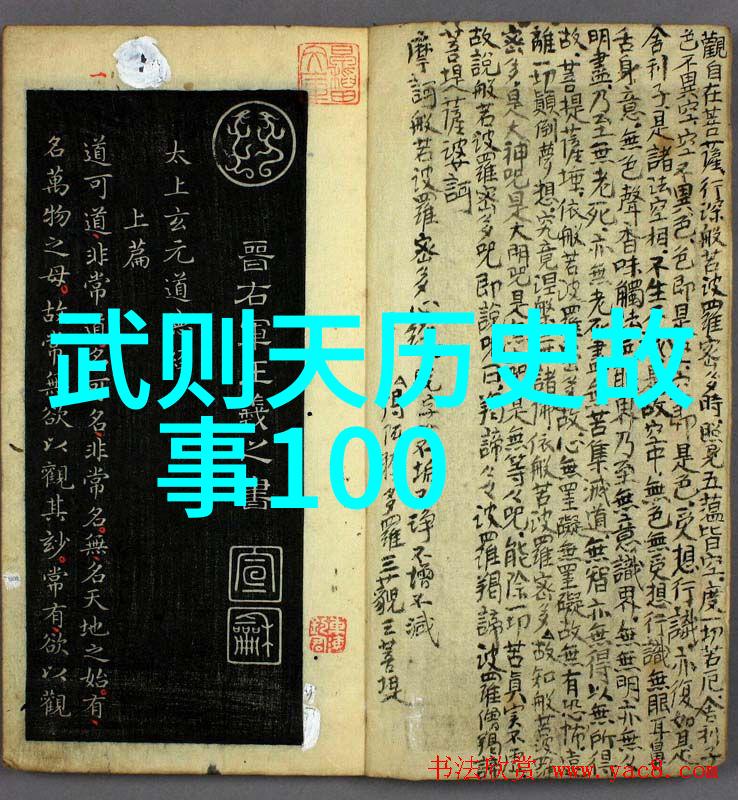 武则天历史故
事100
觀自在菩薩行深般若波羅密多時照見五蘊皆空度一切苦厄舍利子
色不異空空不異色色即是即是色受想行識亦復如是
舍利子是諸法空相不生是故空中無色無受想行識無眼耳鼻
舌身意無色聲香味觸乃至無意識界無無明亦無
明盡乃至無老死亦無老盡無苦集滅道無智亦無得以無所得
故菩提薩埵依般若波羅密多故心無罣礙無罣礙故無有恐怖遠
離一切顛倒夢想究竟涅諸佛依般若波羅密多故知般若波
密多是大神咒是大明咒是無等々咒能除一切苦真實不
故說般若波羅密多咒即說咒曰揭諦々々波羅揭諦波羅僧揭諦
菩提薩婆訶
摩訶般若波羅密多心不垢不淨不增不減
多羅三藐三菩提
晉右軍王羲之書
宣龢
太上玄元道
上篇
道可道非常道名可名非常名無名天地之始有
名萬物之母故常無欲以觀其妙常有欲以觀
书法欣赏 www.yac8.com